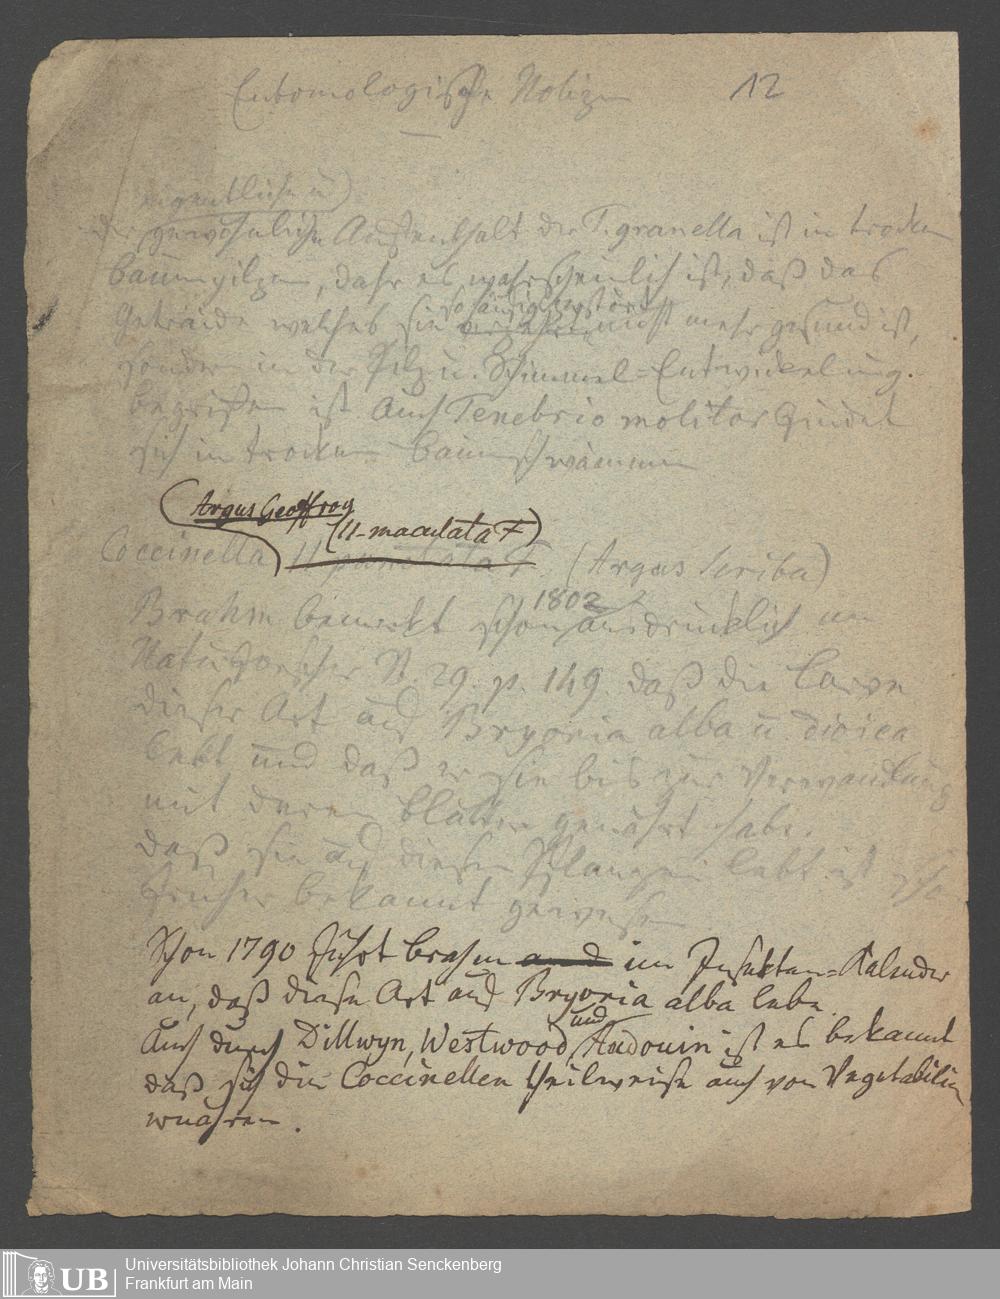 Entomologische Notizen 12
eigentliche u)
der gewöhnliche Aufenthalt der T. granella ist in trocken
Baumpilzen, daher es wahrscheinlich ist, daß das
so häufig zerstört
Getraide welches sie nicht mehr gesund ist,
sondern in der Pilz u. Schimmel=Entwickelung
begriffen ist Auch Tenebrio molitor findet
sich in trocken Baumschwämmen
Argus Geoffroy
(11-maculata F)
Coccinella 11 punctata F. (Argus Scriba)
1802
Brahm bemerkt schon ausdrücklich im
Naturforscher St. 29. p. 149. daß die Larve
dieser Art auf Bryonia alba u. dioica
lebt und daß er sie bis zur Verwandlung
mit deren Blätter genährt habe.
daß sie auf diesen Pflanzen lebt ist
früher bekannt gewesen
Schon 1790 führt Brahm und im Insekten=Kalender
an, daß diese Art auf Bryonia alba lebe.
und
Auch durch Dillwyn, Westwood Audouin ist es bekannt
daß sich die Coccinellen theilweise auch von Vegetabilien
ernähren.
UB Universitätsbibliothek Johann Christian Senckenberg
Frankfurt am Main